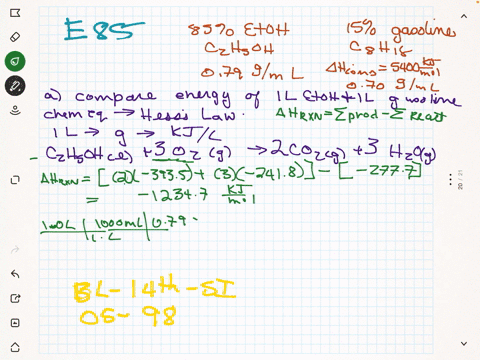 E85
85% EtOH
C2H5OH
0.79 g/mL
15% gasoline
C8H18
ΔHcomb = 5400 KJ/mol
0.70 g/mL
a) compare energy of 1L EtOH + 1L gasoline
chem Eq → Hess's Law. ΔHRXN = Σprod - Σ React
1L → g → KJ/L
C2H5OH(l) + 3 O2(g) → 2CO2(g) + 3 H2O(g)
ΔHRXN = [(2)(-393.5) + (3)(-241.8)] - [-277.7]
= -1234.7 KJ/mol
1.00L | 1000mL | 0.79
1 L
BL-14th-SI
OS-98
20 / 21